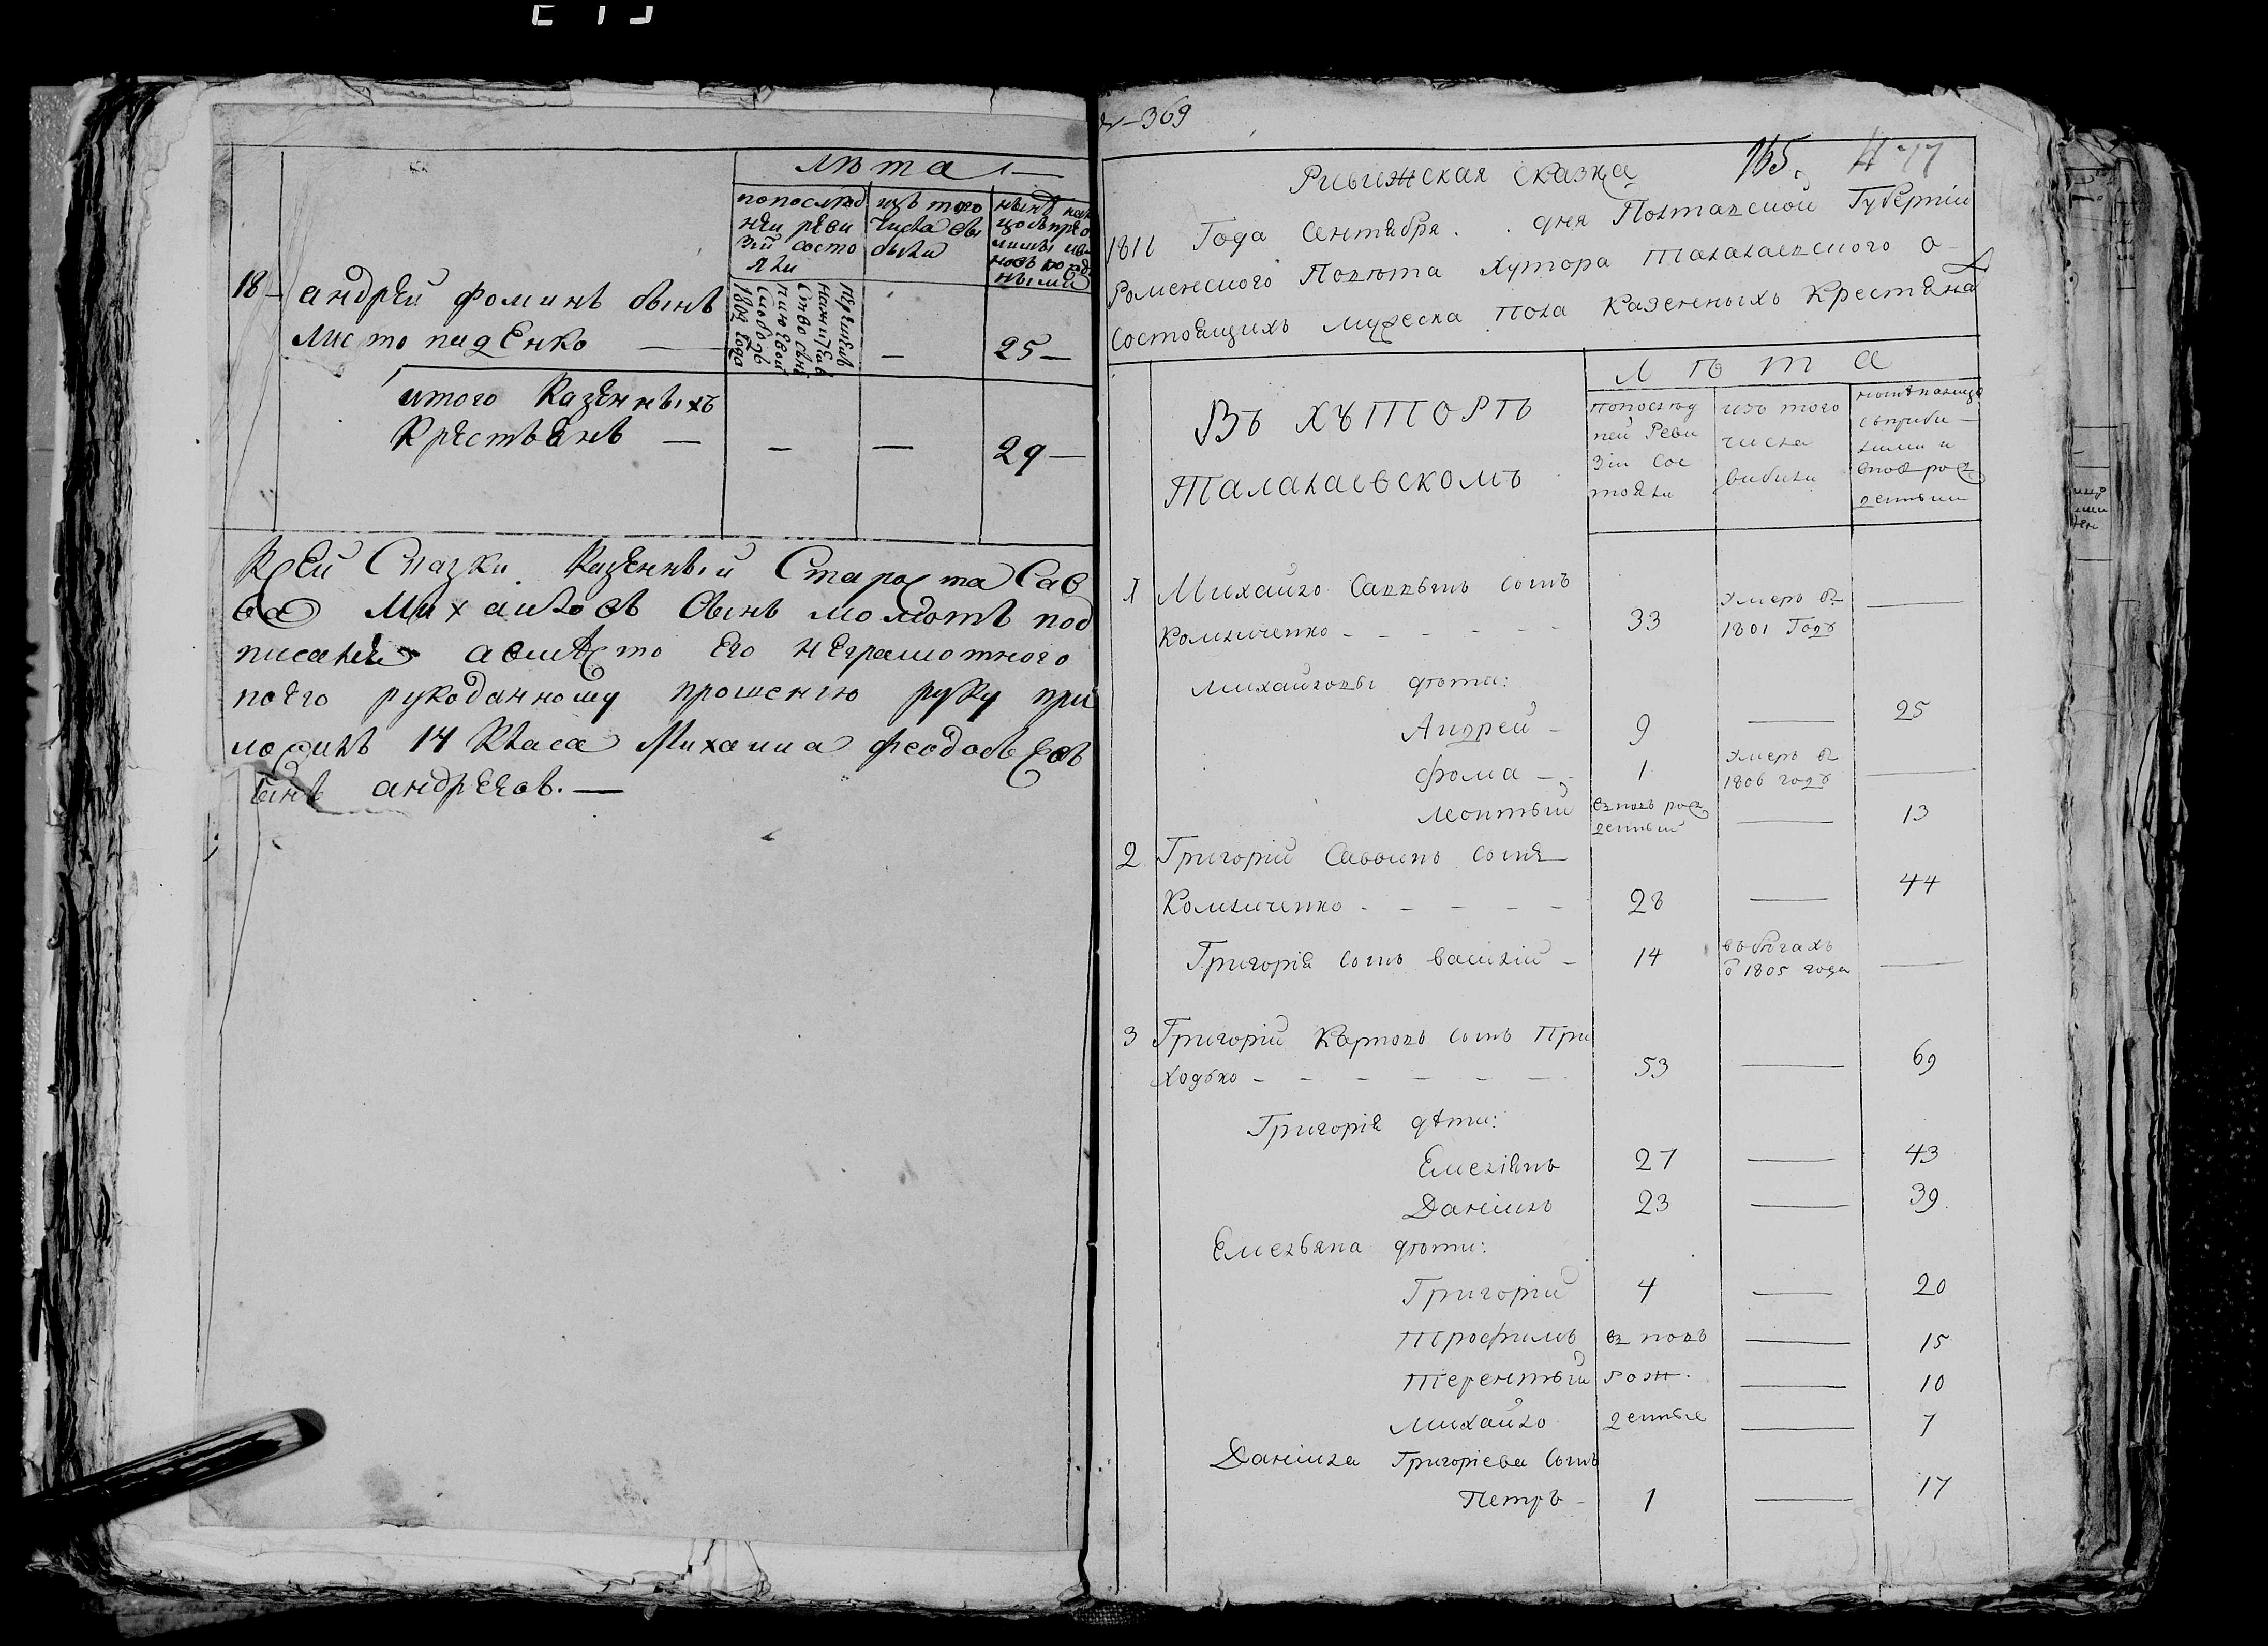 лѣта
попослѣд
ней реви
зіи состо
яли
изъ того
числа вы
были
18 андрей фоминъ сынъ
листопаденко — — 25
1809 года
итого казенныхъ
крестьянъ — — — 29
Ксей Сказки казенный Староста Сав
ва Михайловъ Сынъ
писался авмѣсто его неграмотного
поего рукоданному прошенію руку при
ложилъ 14 класа Михаила феодосѣевъ
сынъ андреевъ. —
369
Ривижская сказка 165. 477
1811 Года Сентября . . дня Полтавской Губерніи
Роменского Повѣта Хутора Талалаевского о
состоящихъ мужеска пола казенныхъ Крестьяна
Лѣта
Въ хуторѣ
Талалаевскомъ
попослѣд
ней Реви
зіи сос
тояли
изъ того
числа
выбыли
1 Михайло Саввынъ сынъ
Комличенко - - - - - 33 Умеръ в 1801 Году —
Михайловы дѣти:
Андрей - 9 — 25
фома - 1 Умеръ в 1806 году —
Леонтый вновь рожденный — 13
2 Григорій Саввинъ сынъ
Комличенко - - - - - 28 — 44
Григорія сынъ василій - 14 въ бѣгахъ с 1805 года —
3 Григорій Карповъ сынъ При
ходько - - - - - - 53 — 69
Григорія дѣти:
Емеліянъ 27 — 43
Данiилъ 23 — 39
Емельяна дѣти:
Григорій 4 — 20
Трофимъ вновь — 15
Терентый рож — 10
Михайло денные — 7
Даніила Григоріева сынъ
Петръ - 1 — 17